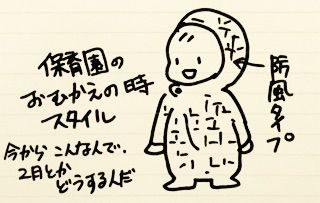 保育園の
おむかえの時
スタイル
今からこんなんで、
2月とか
どうするんだ
防風タイプ